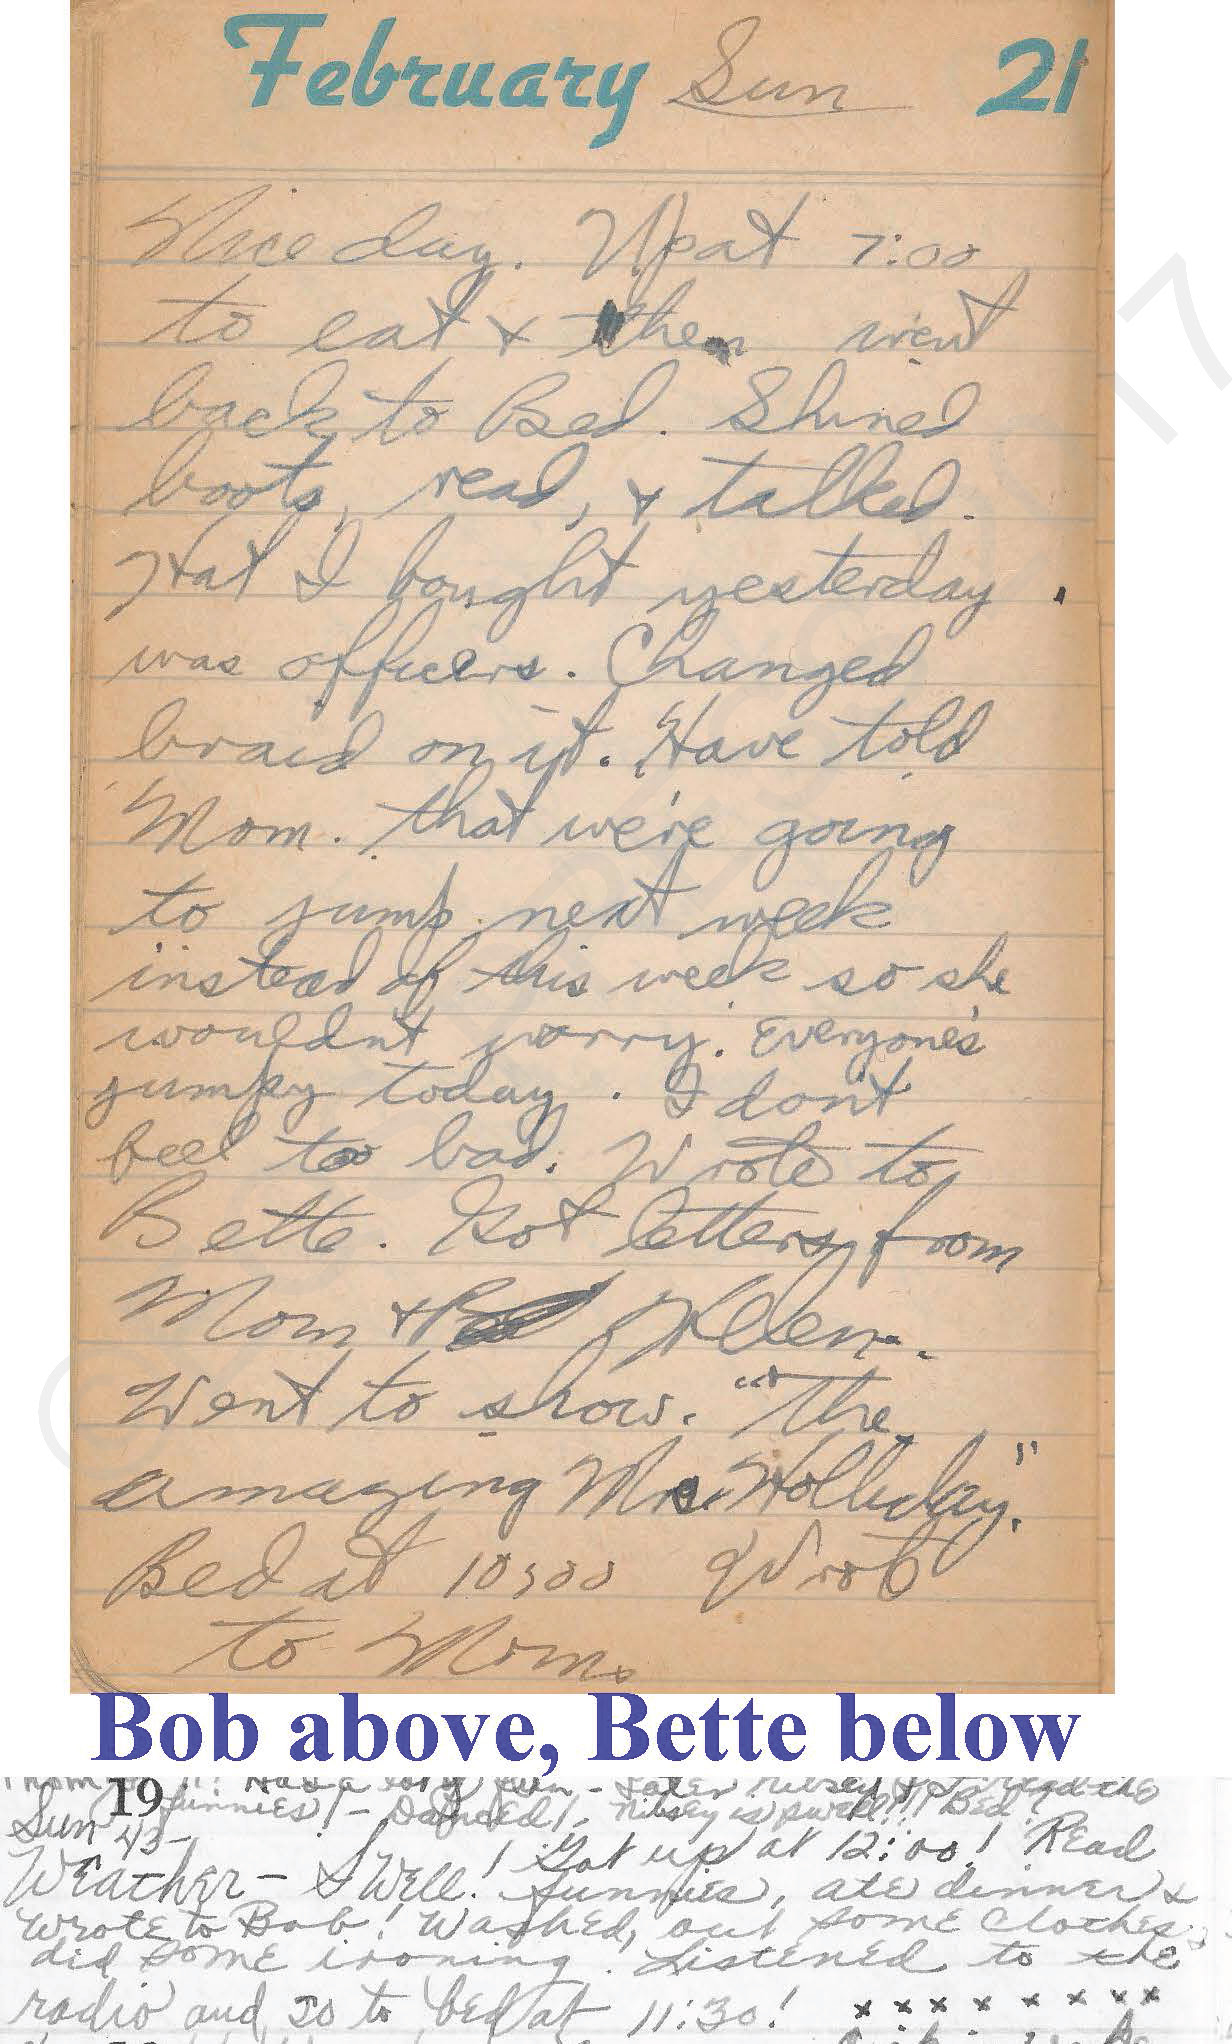 February Sun 21
Nice day. Up at 7:00
to eat & then went
back to Bed. Shined
boots, read, & talked.
Hat I bought yesterday
was officers. Changed
braid on it. Have told
Mom. that we're going
to jump next week
instead of this week so she
wouldn't worry. Everyone's
jumpy today. I don't
feel too bad. Wrote to
Bette. Got letters from
Mom &
Went to show. "The
amazing Mrs. Holliday."
Bed at 10:00 Wrote
to Mom.
Bob above, Bette below
Had a fun - Later & I read the
19 funnies! - Danced! is swell!!! Bed
Sun 43 -
Weather - Swell! Got up at 12:00! Read
funnies, ate dinner &
wrote to Bob! Washed, out some clothes &
did some ironing. Listened to the
radio and so to bed at 11:30! x x x x x x x x